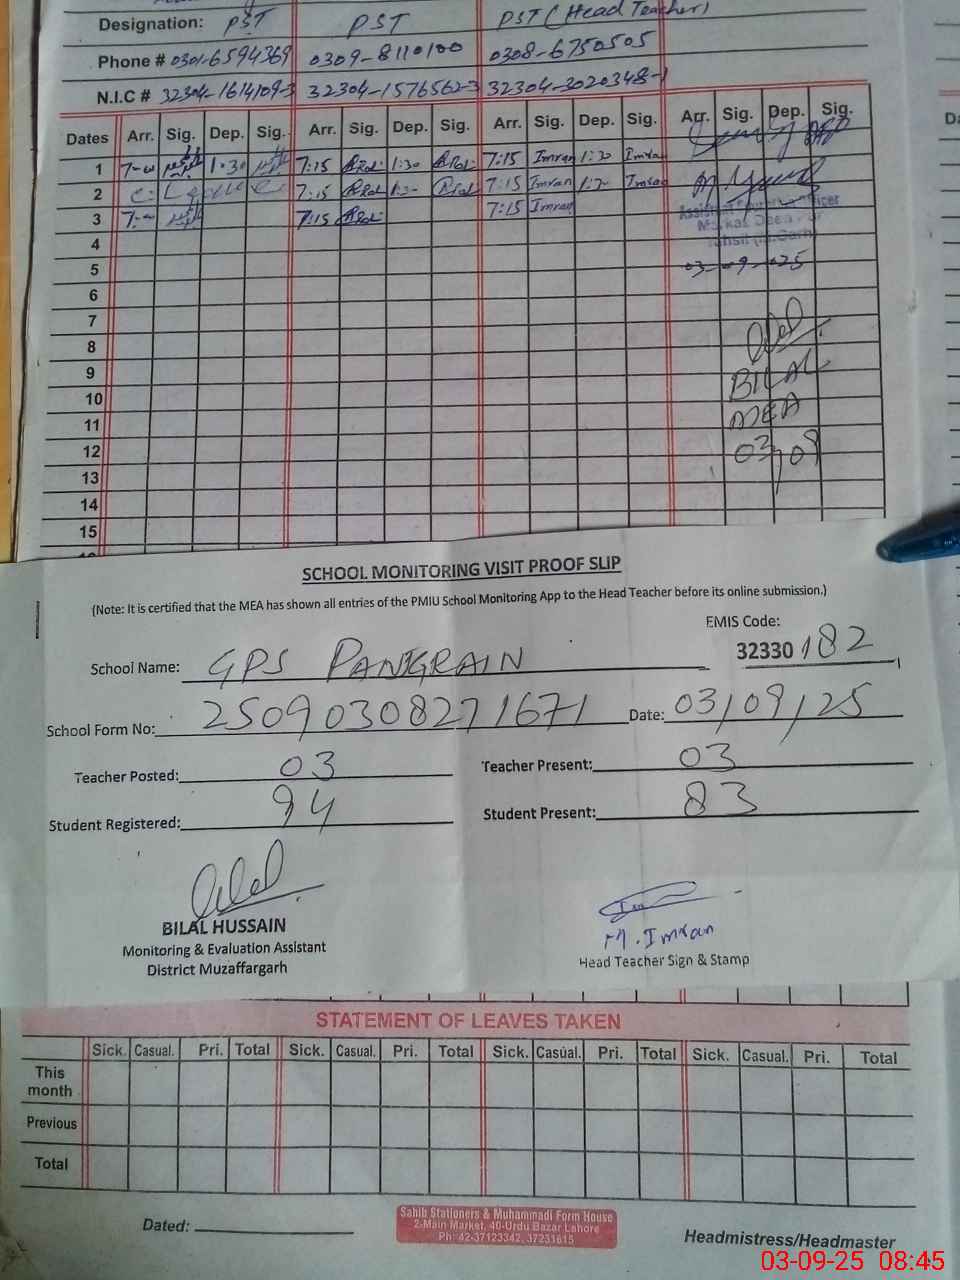 Designation: PST PST PST (Head Teacher)
Phone # 0301-6594369 0309-8110100 0308-6750505
N.I.C # 32304-1614109-3 32304-1576562-3 32304-3020348-1
Dates Arr. Sig. Dep. Sig. Arr. Sig. Dep. Sig. Arr. Sig. Dep. Sig. Arr. Sig. Dep. Sig.
1 7-00 1:30 7:15 1:30 7:15 Imran 1:30 Imran
2 C. Leave 7:15 7:15 Imran Imran
3 7-00 7:15 7:15 Imran
4
5 03-09-025
6
7
8
9 BILAL
10
11 MEA
12 03/09
13
14
15
SCHOOL MONITORING VISIT PROOF SLIP
(Note: It is certified that the MEA has shown all entries of the PMIU School Monitoring App to the Head Teacher before its online submission.)
EMIS Code:
School Name: GPS PANGRAIN 32330 182
School Form No: 25090308271671 Date: 03/09/25
Teacher Posted: 03 Teacher Present: 03
Student Registered: 94 Student Present: 83
BILAL HUSSAIN
Monitoring & Evaluation Assistant
District Muzaffargarh
M. Imran
Head Teacher Sign & Stamp
STATEMENT OF LEAVES TAKEN
Sick. Casual. Pri. Total Sick. Casual. Pri. Total Sick. Casual. Pri. Total Sick. Casual. Pri. Total
This month
Previous
Total
Dated:
Sahib Stationers & Muhammadi Form House
2-Main Market, 40-Urdu Bazar Lahore
Ph: 42-37123342, 37231615
Headmistress/Headmaster
03-09-25 08:45